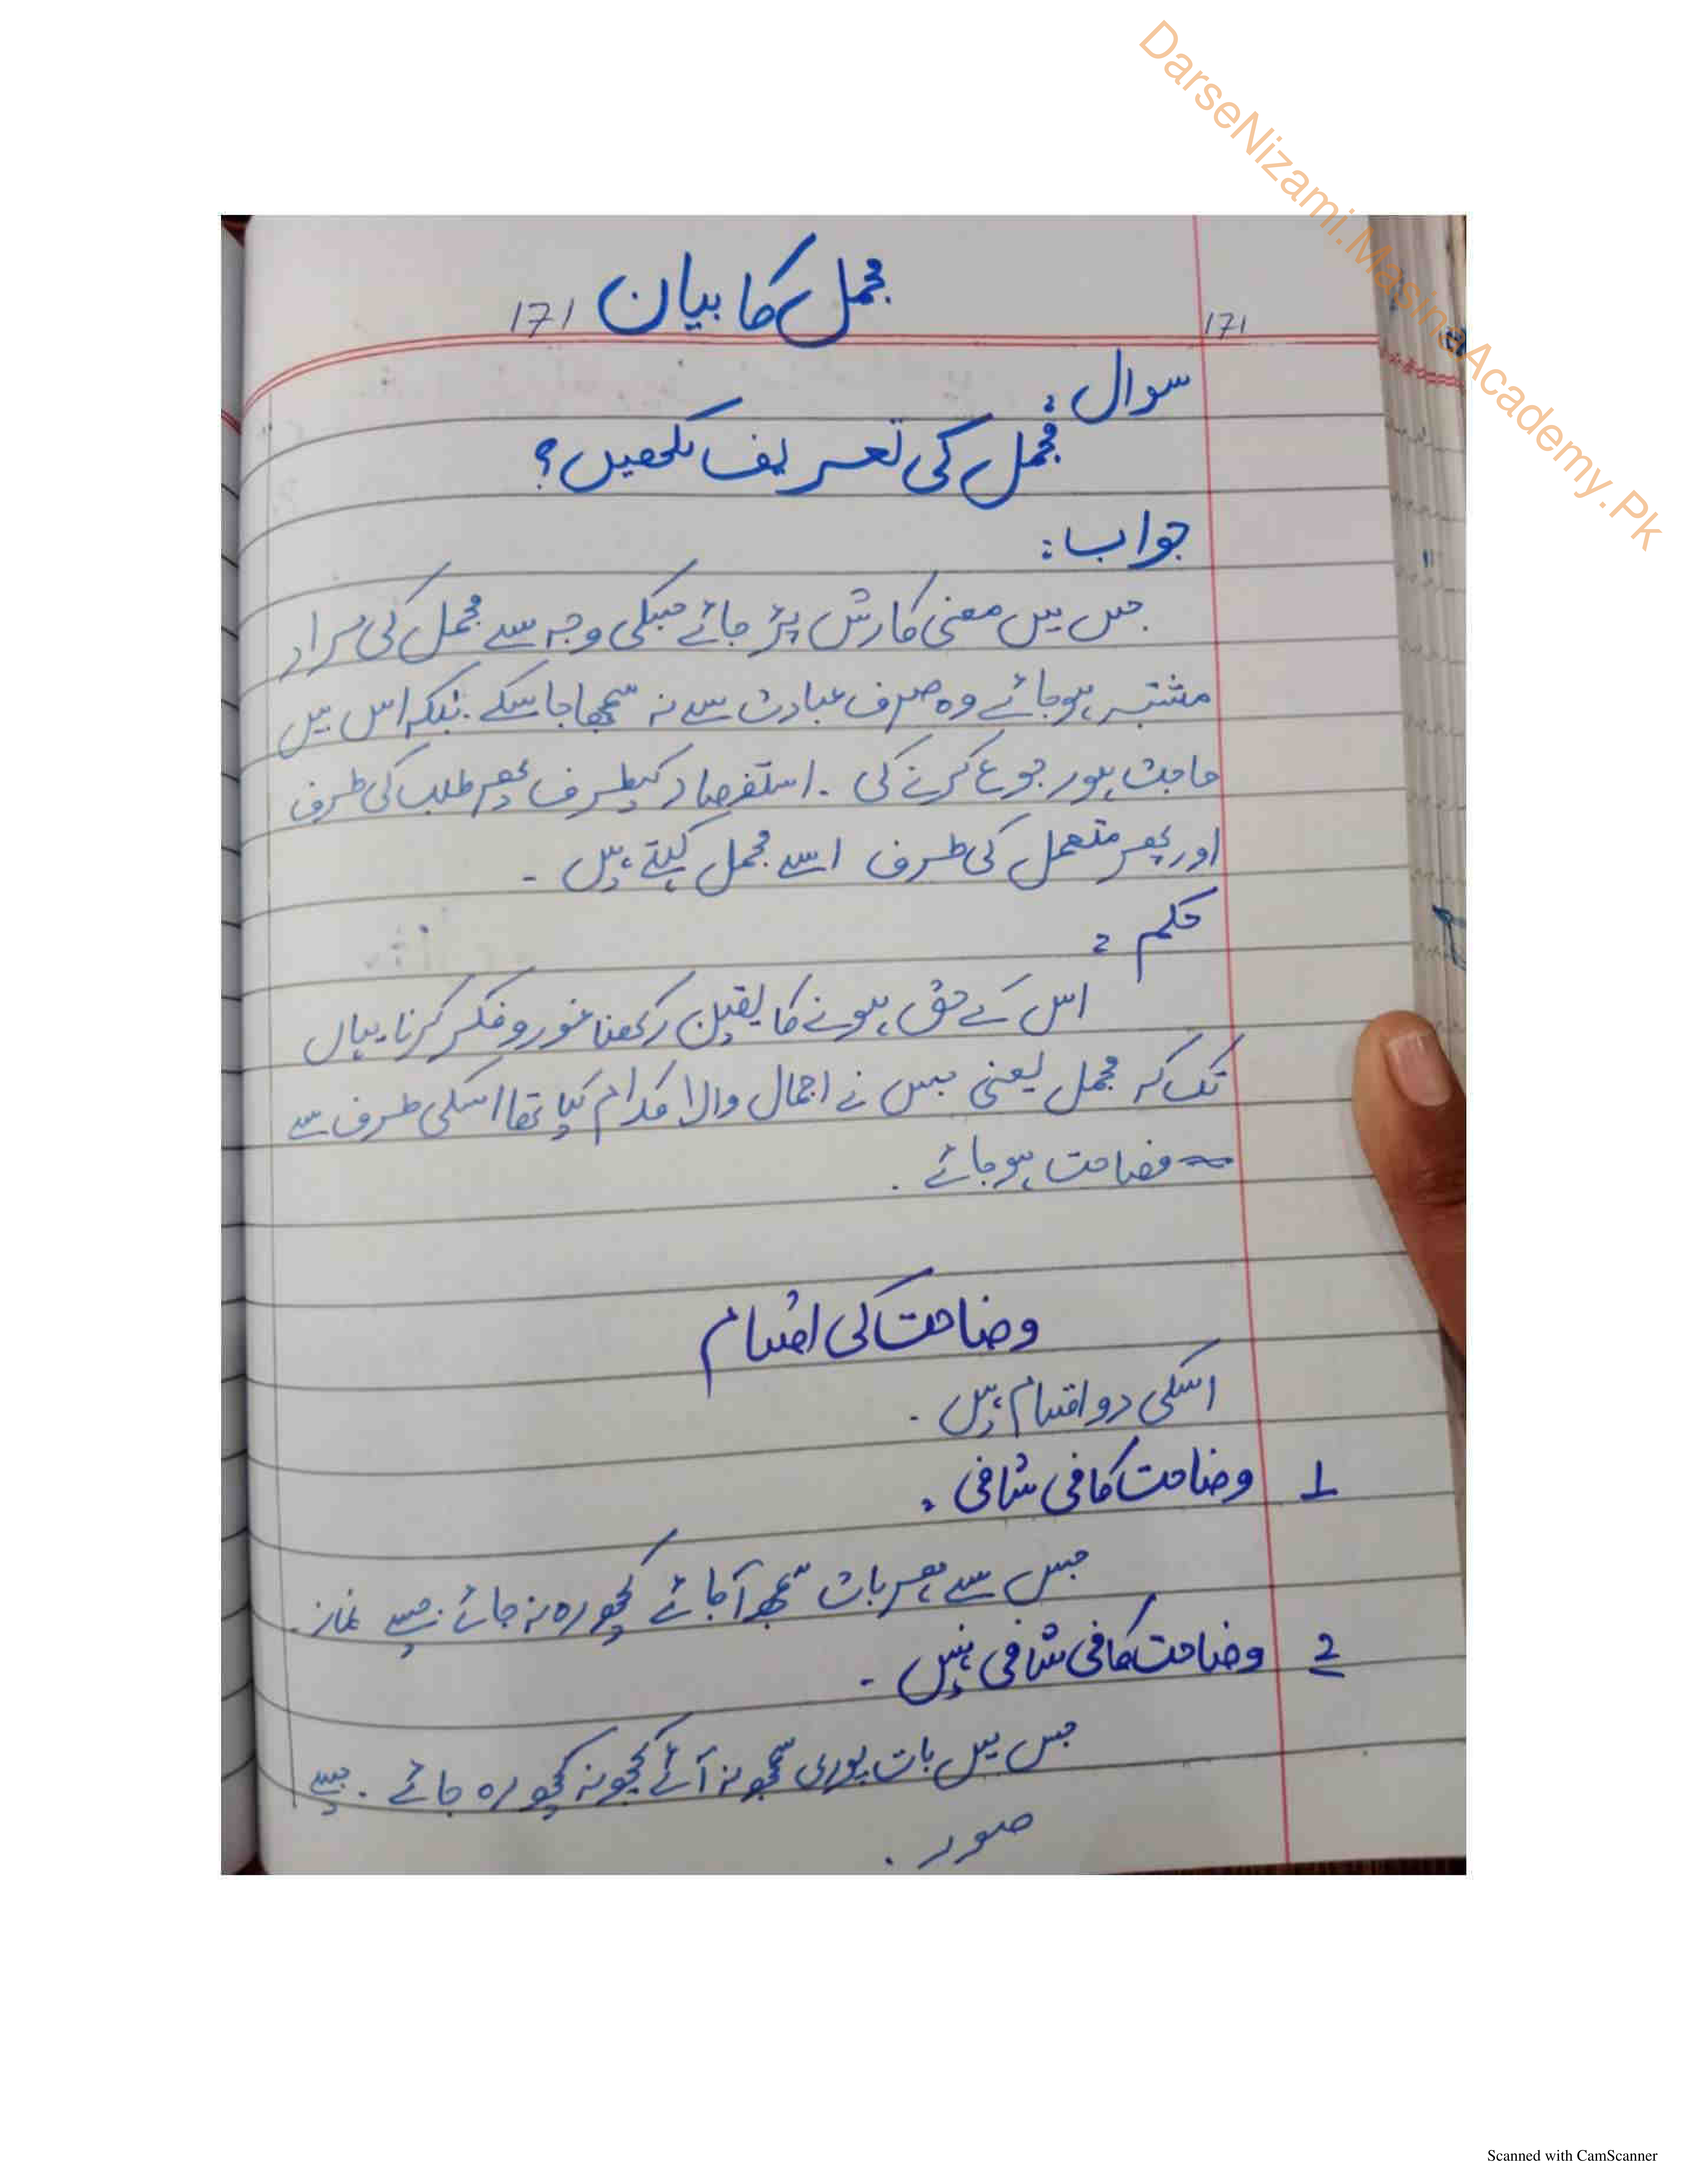 DarseNizami.MadinaAcademy.Pk
مجمل کا بیان 171
171
سوال:
مجمل کی تعریف لکھیں؟
جواب:
جس میں معنی کا رش پڑ جائے جسکی وجہ سے مجمل کی مراد
مشتبہ ہوجائے وہ صرف عبادت سے نہ سمجھا جا سکے۔ بلکہ اس میں
حاجت ہو رجوع کرنے کی ۔ استفصاد کیطرف پھر طلب کی طرف
اور پھر متعمل کی طرف اسے مجمل کہتے ہیں ۔
حکم:
اس کے حق ہونے کا یقین رکھنا غور و فکر کرنا یہاں
تک کہ مجمل یعنی جس نے اجمال والا کلام کیا تھا اسکی طرف سے
وضاحت ہو جائے ۔
وضاحت کی اقسام
اسکی دو اقسام ہیں ۔
1 وضاحت کافی شافی :
جس سے ہر بات سمجھ آ جائے کچھ رہ نہ جائے ۔ جیسے نماز ۔
2 وضاحت کافی شافی نہیں ۔
جس میں بات پوری سمجھ نہ آئے کچھ نہ کچھ رہ جائے ۔ جیسے
سود ۔
Scanned with CamScanner